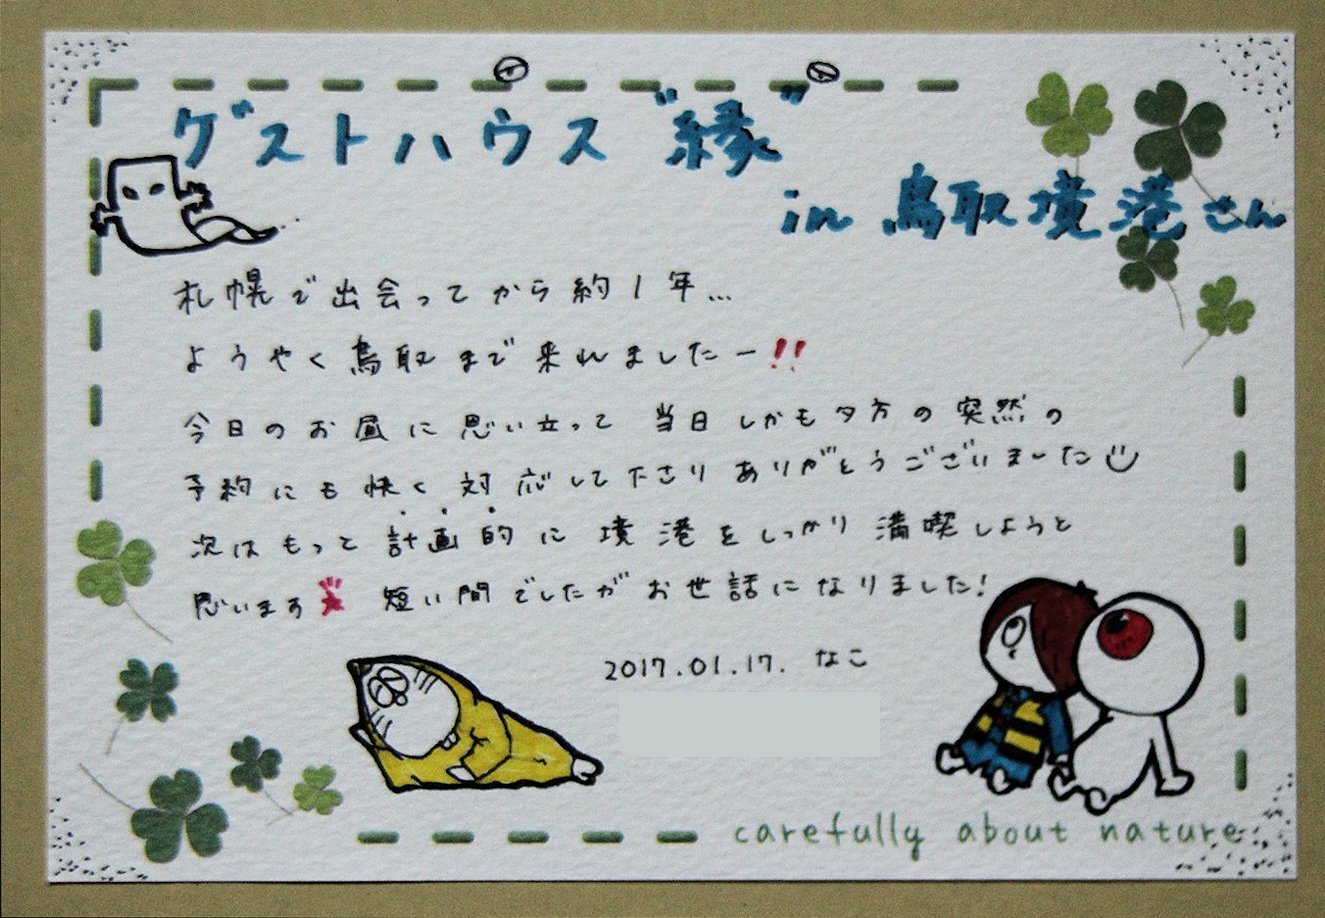 ゲストハウス"縁"
in 鳥取境港さん
札幌で出会ってから約1年...
ようやく鳥取まで来れましたー!!
今日のお昼に思い立って 当日しかも夕方の突然の
予約にも快く対応して下さりありがとうございました
次はもっと計画的に境港をしっかり満喫しようと
思います 短い間でしたがお世話になりました!
2017.01.17. なこ
carefully about nature